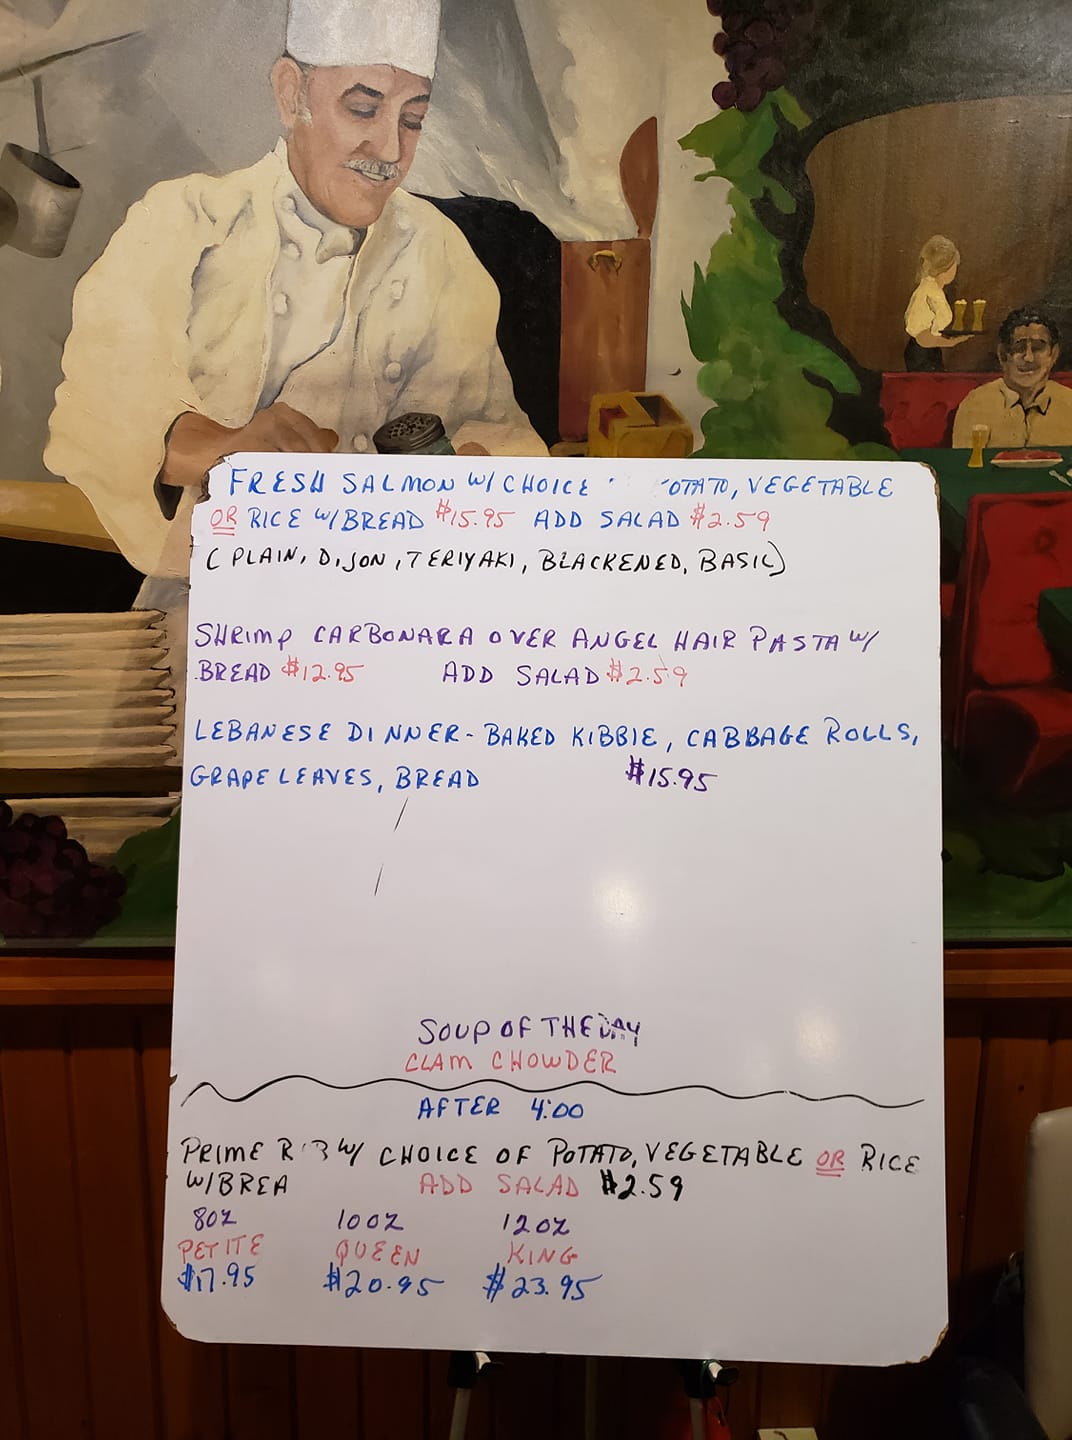 FRESH SALMON W/ CHOICE OTATO, VEGETABLE
OR RICE W/BREAD $15.95 ADD SALAD $2.59
(PLAIN, DIJON, TERIYAKI, BLACKENED, BASIL)
SHRIMP CARBONARA OVER ANGEL HAIR PASTA W/
BREAD $12.95 ADD SALAD $2.59
LEBANESE DINNER - BAKED KIBBIE, CABBAGE ROLLS,
GRAPE LEAVES, BREAD $15.95
SOUP OF THE DAY
CLAM CHOWDER
AFTER 4:00
PRIME R B W/ CHOICE OF POTATO, VEGETABLE OR RICE
W/BREA ADD SALAD $2.59
8OZ 10OZ 12OZ
PETITE QUEEN KING
$17.95 $20.95 $23.95